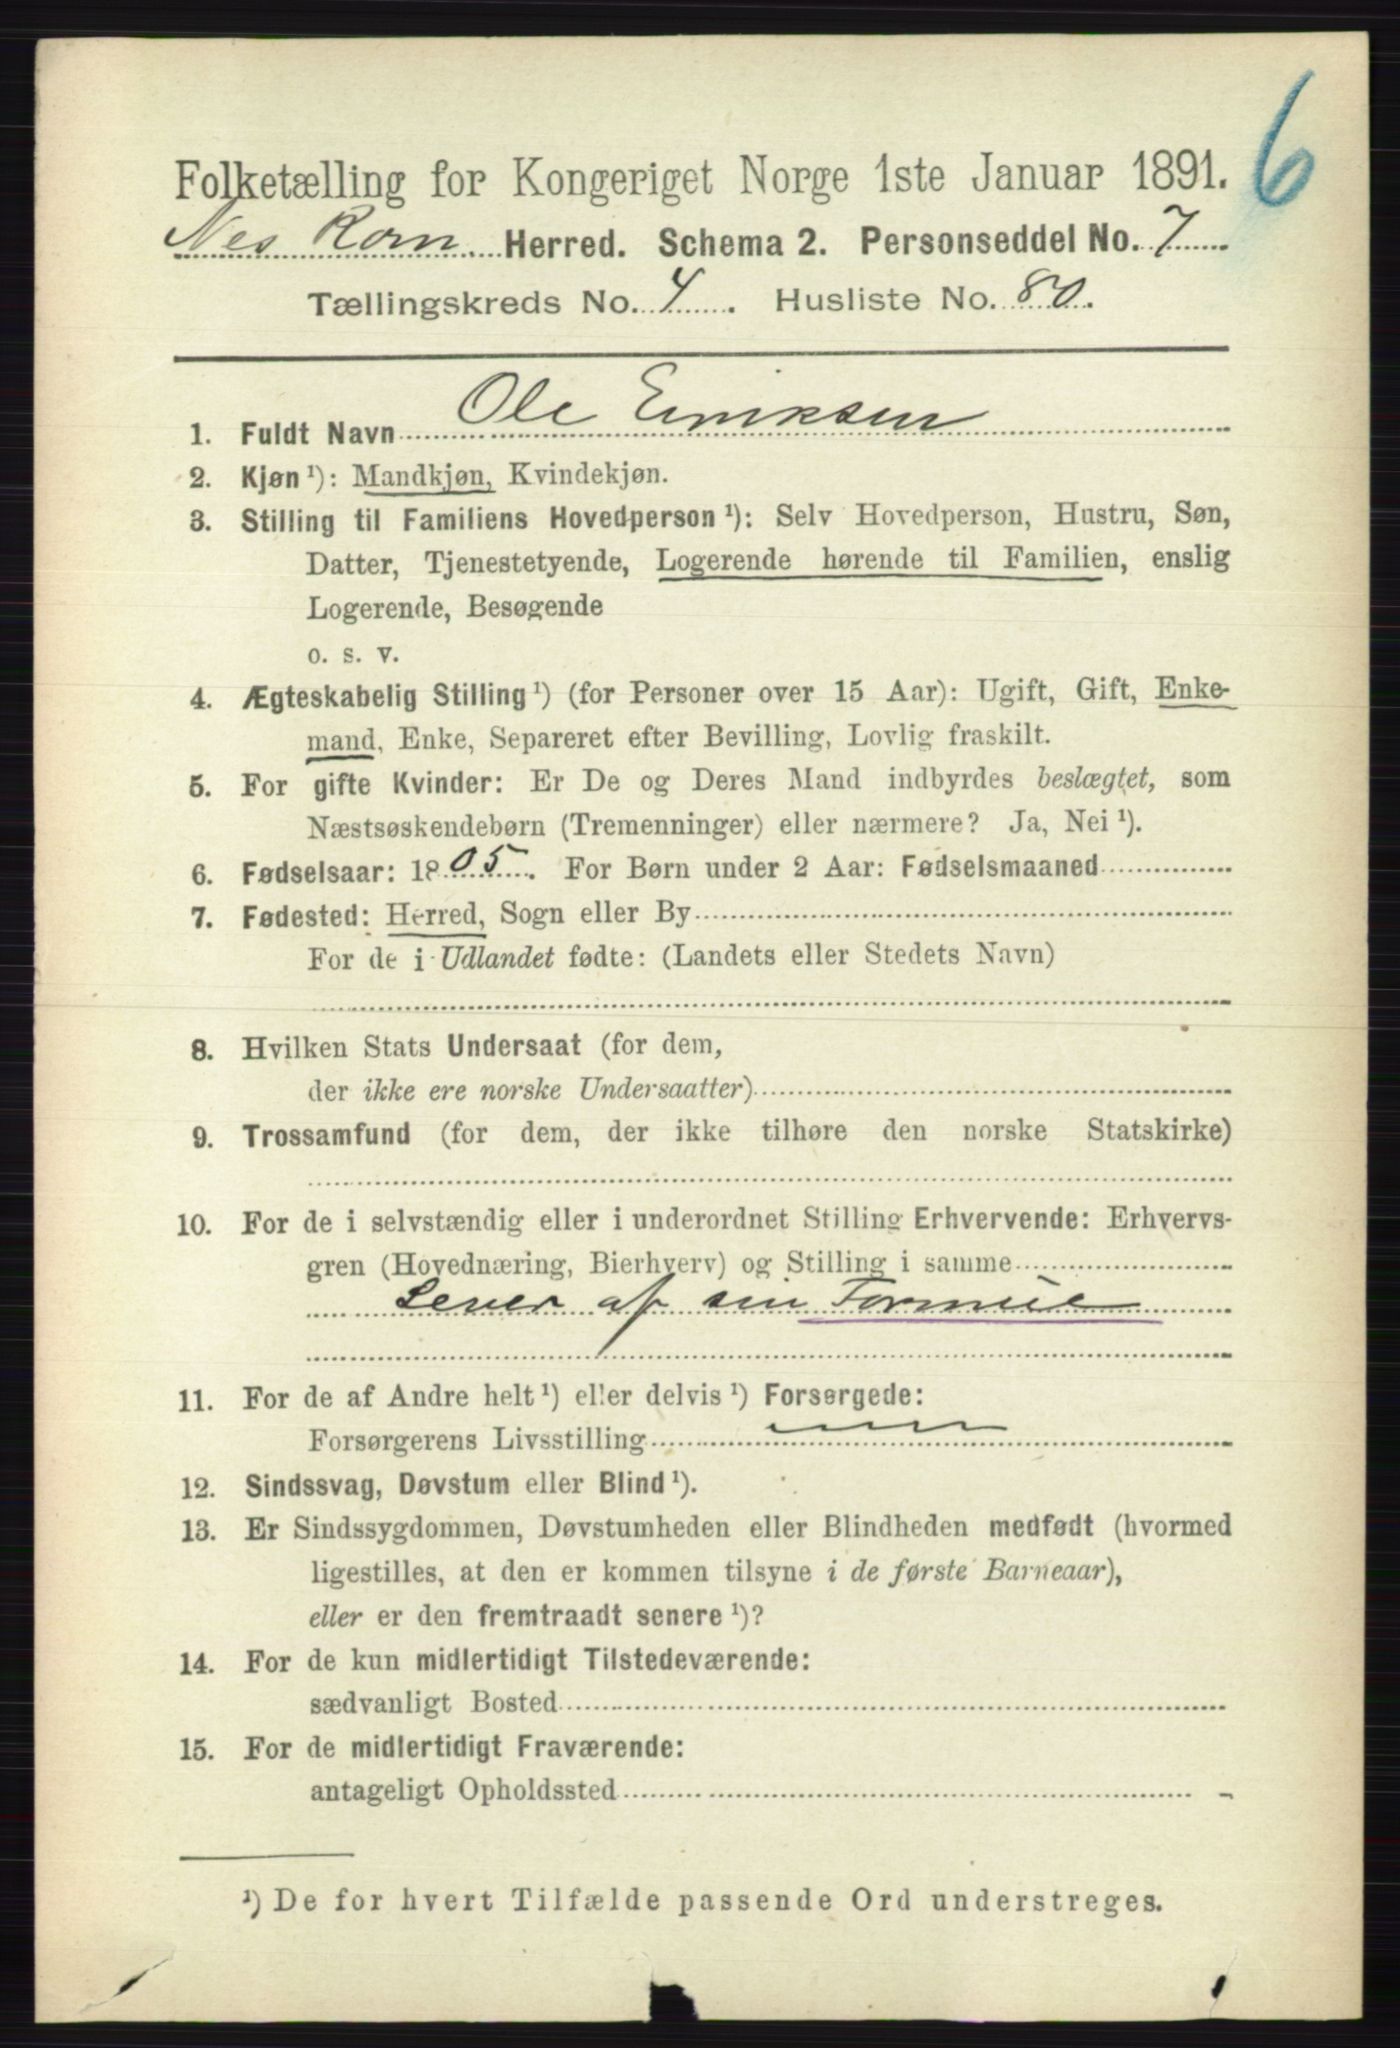 6
Folketælling for Kongeriget Norge 1ste Januar 1891.
Nes Rom. Herred. Schema 2. Personseddel No. 7
Tællingskreds No. 4. Husliste No. 80.
1. Fuldt Navn Ole Eriksen
2. Kjøn ¹): Mandkjøn, Kvindekjøn.
3. Stilling til Familiens Hovedperson ¹): Selv Hovedperson, Hustru, Søn,
Datter, Tjenestetyende, Logerende hørende til Familien, enslig
Logerende, Besøgende
o. s. v.
4. Ægteskabelig Stilling ¹) (for Personer over 15 Aar): Ugift, Gift, Enke-
mand, Enke, Separeret efter Bevilling, Lovlig fraskilt.
5. For gifte Kvinder: Er De og Deres Mand indbyrdes beslægtet, som
Næstsøskendebørn (Tremenninger) eller nærmere? Ja, Nei ¹).
6. Fødselsaar: 1805. For Børn under 2 Aar: Fødselsmaaned
7. Fødested: Herred, Sogn eller By
For de i Udlandet fødte: (Landets eller Stedets Navn)
8. Hvilken Stats Undersaat (for dem,
der ikke ere norske Undersaatter)
9. Trossamfund (for dem, der ikke tilhøre den norske Statskirke)
10. For de i selvstændig eller i underordnet Stilling Erhvervende: Erhvervs-
gren (Hovednæring, Bierhverv) og Stilling i samme
Lever af sin Formue
11. For de af Andre helt ¹) eller delvis ¹) Forsørgede:
Forsørgerens Livsstilling
12. Sindssvag, Døvstum eller Blind ¹).
13. Er Sindssygdommen, Døvstumheden eller Blindheden medfødt (hvormed
ligestilles, at den er kommen tilsyne i de første Barneaar),
eller er den fremtraadt senere ¹)?
14. For de kun midlertidigt Tilstedeværende:
sædvanligt Bosted
15. For de midlertidigt Fraværende:
antageligt Opholdssted
¹) De for hvert Tilfælde passende Ord understreges.